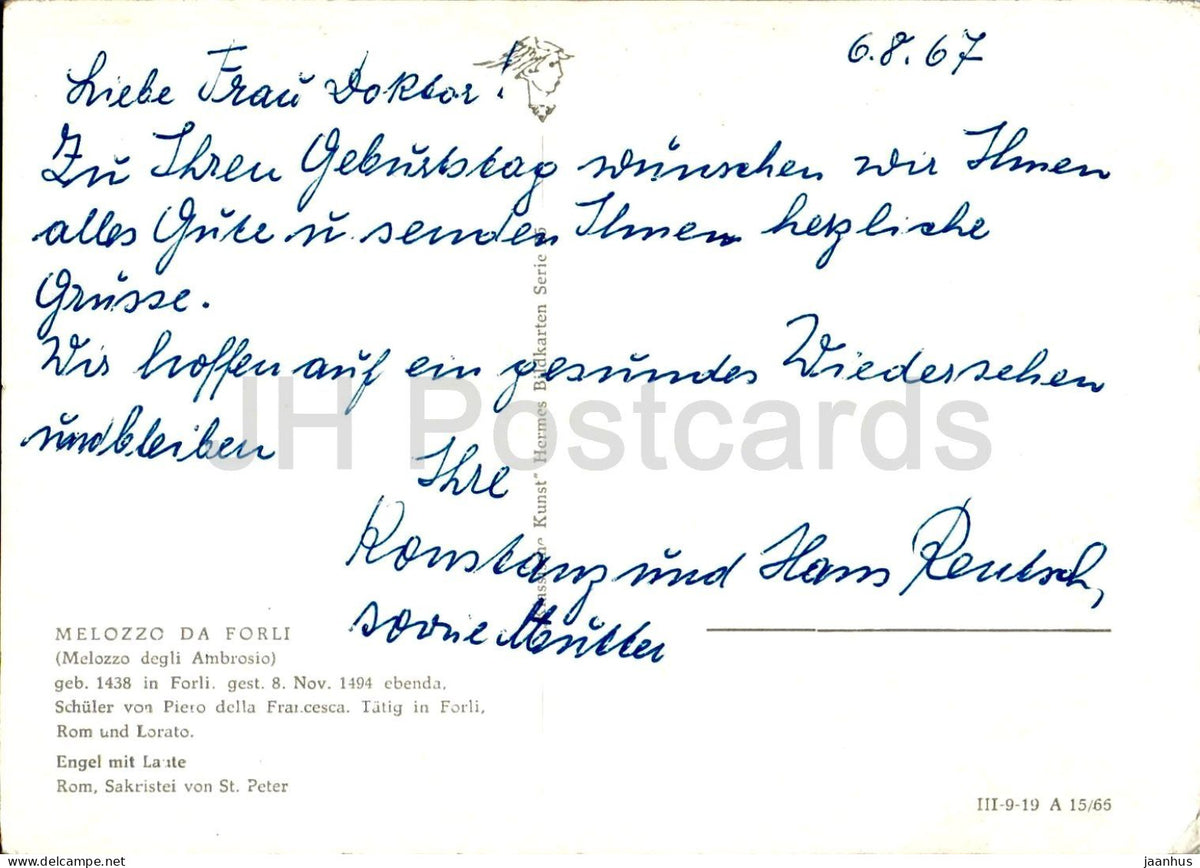 6.8.67
Liebe Frau Doktor!
Zu Ihren Geburtstag wünschen wir Ihnen
alles Gute u. senden Ihnen herzliche
Grüsse.
Wir hoffen auf ein gesundes Wiedersehen
und bleiben
Ihre
Konstanz und Hans Rentsch,
sowie Mutter
Kunst" Hermes Bildkarten Serie
JH Postcards
MELOZZO DA FORLI
(Melozzo degli Ambrosio)
geb. 1438 in Forli. gest. 8. Nov. 1494 ebenda.
Schüler von Piero della Francesca. Tätig in Forli,
Rom und Lorato.
Engel mit Laute
Rom, Sakristei von St. Peter
III-9-19 A 15/66
www.delcampe.net
jaanhus